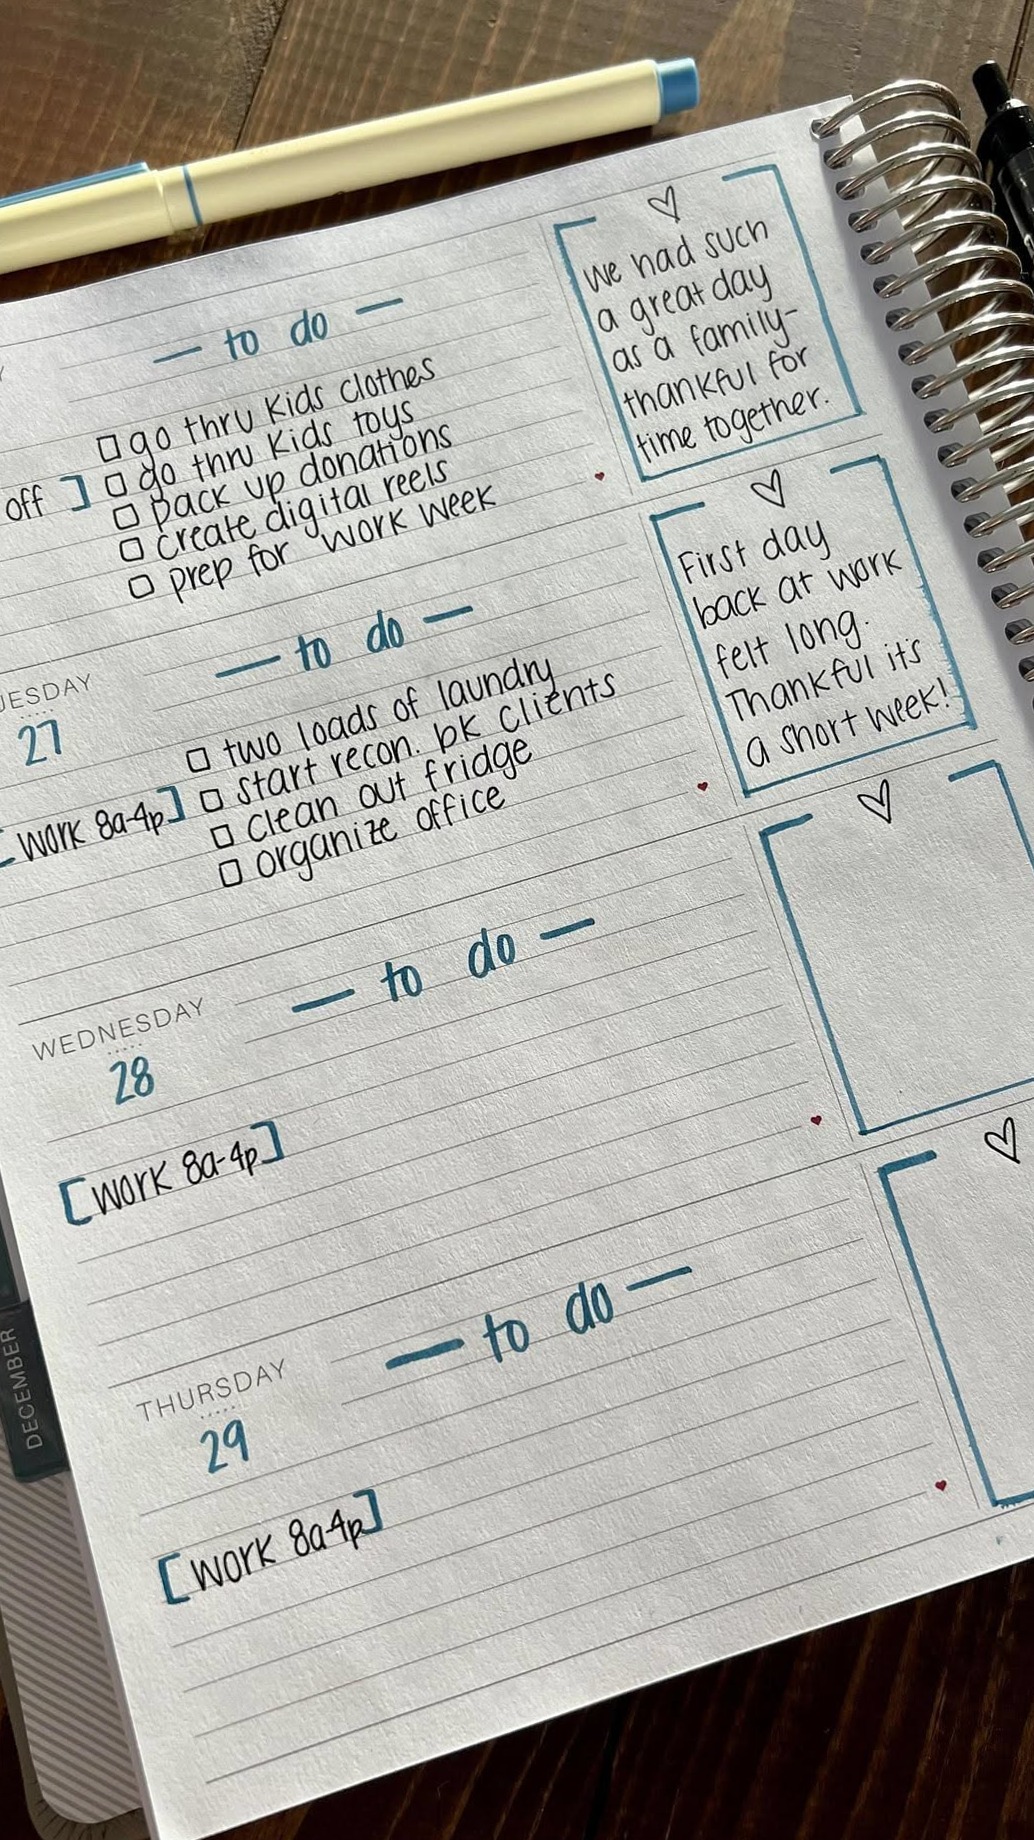 — to do —
□ go thru kids clothes
□ go thru kids toys
off ] □ pack up donations
□ create digital reels
□ prep for work week
♡
We had such
a great day
as a family-
thankful for
time together.
UESDAY
27
— to do —
□ two loads of laundry
□ start recon. bk clients
[work 8a-4p] □ clean out fridge
□ organize office
♡
First day
back at work
felt long.
Thankful it's
a short week!
WEDNESDAY
28
— to do —
[work 8a-4p]
♡
THURSDAY
29
— to do —
[work 8a-4p]
♡
DECEMBER